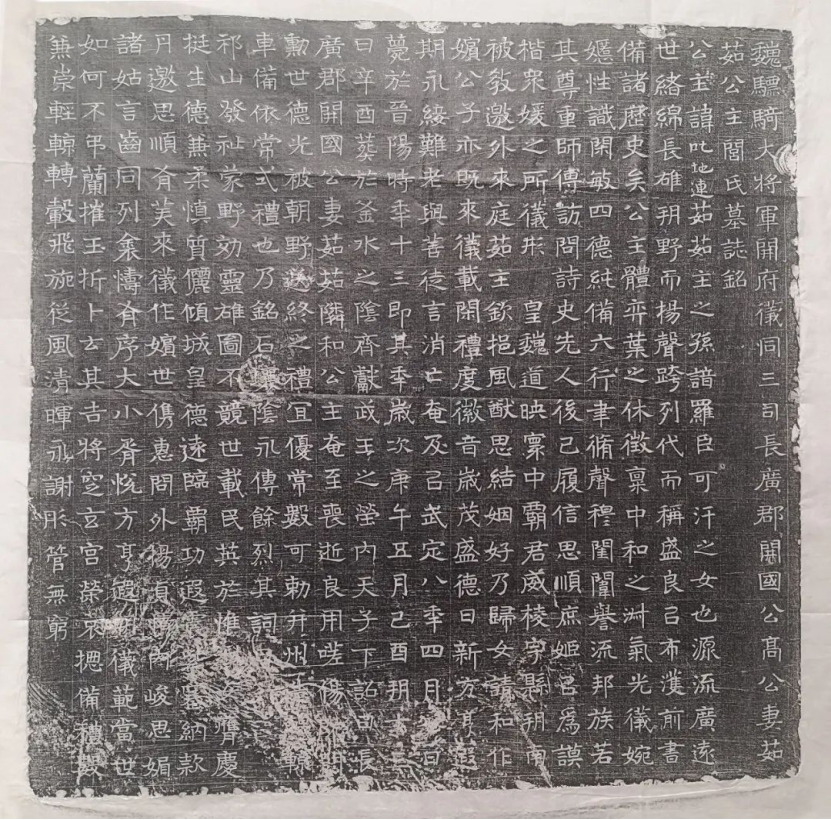 魏驃騎大將軍開府儀同三司長廣郡開國公高公妻茹
茹公主閭氏墓誌銘
公主諱叱地連茹茹主之孫諳羅臣可汗之女也源流廣遠
世緒綿長雄朔野而揚聲跨列代而稱盛良㠯布濩前書
備諸歷史矣公主體弈葉之休徵稟中和之淑氣光儀婉
嫕性識閑敏四德純備六行聿脩聲穆閨闈譽流邦族若
其尊重師傅訪問詩史先人後己履信思順庶姬㠯為謨
楷衆媛之所儀形 皇魏道映寰中霸君威棱宇縣朔南
被教邀外來庭茹主欽挹風猷思結姻好乃歸女請和作
嬪公子亦既來儀載閑禮度徽音歲茂盛德日新方亨遐
期永綏難老與善徒言消亡奄及㠯武定八年四月日
薨於晉陽時年十三即其年歲次庚午五月己酉朔十三
日辛酉葬於釜水之陰齊獻武王之塋內天子下詔曰長
廣郡開國公妻茹茹隣和公主奄至喪逝良用嗟傷
勳世德光被朝野送終之禮宜優常數可勅并州造輬
車備依常式禮也乃銘石陰永傳餘烈其詞
祁山發祉蒙野効靈雄圖不競世載民英於惟膺慶
挺生德兼柔慎質儷傾城皇德遠臨霸功遐塞納款
丹邀思順有美來儀作嬪世儁惠問外揚貞內峻思媚
諸姑言齒同列衾幬有序大小胥悅方亨遐儀範當世
如何不弔蘭摧玉折卜云其吉將窆玄宮榮哀摠備禮數
兼崇輕輬轉轂飛旐從風清暉永謝彤管無窮